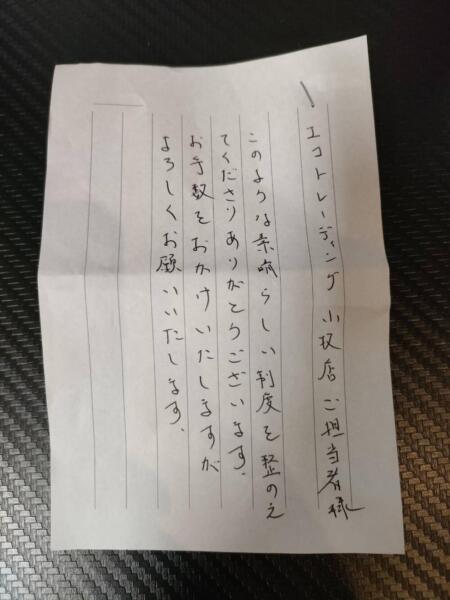 エコトレーディング 小阪店ご担当者様
このような素晴らしい制度を整のえ
てくださりありがとうございます。
お手数をおかけいたしますが
よろしくお願いいたします。